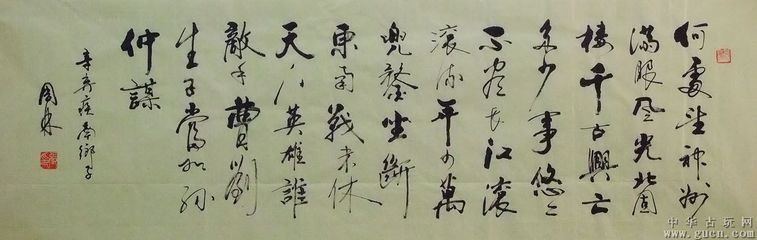 何處望神州
滿眼風光北固
樓千古興亡
多少事悠悠
不盡長江滾
滾流年少萬
兜鍪坐斷
東南戰未休
天下英雄誰
敵手曹劉
生子當如孫
仲謀
辛弃疾南鄉子
中华古玩网
www.gucn.com